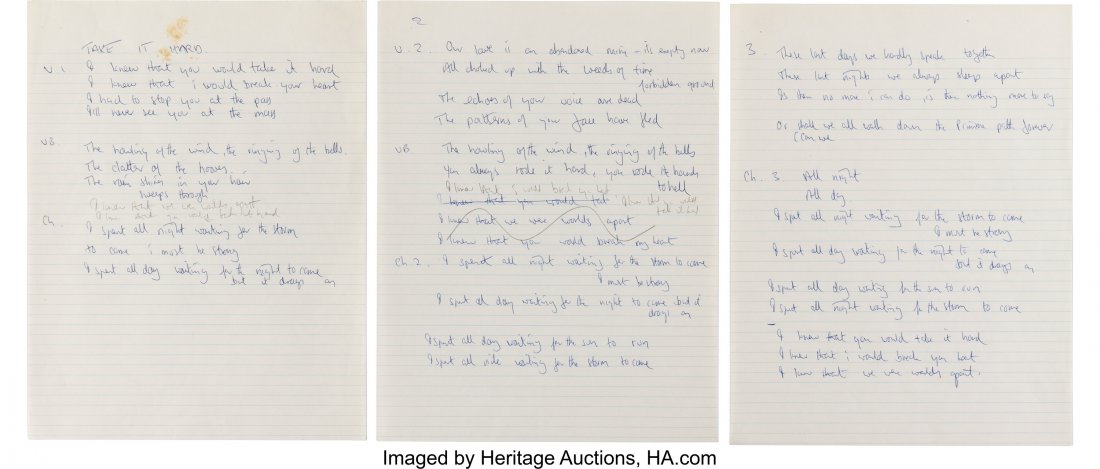 TAKE IT HARD
V. 1 I knew that you would take it hard
I knew that i would break your heart
I had to stop you at the pass
I'll never see you at the mass
VB. The howling of the wind, the ringing of the bells.
The clatter of the hooves,
The rain shining in your hair
sweeps through
I knew that we were worlds apart
I knew that you would take it hard
Ch. I spent all night waiting for the storm
to come i must be strong
I spent all day waiting for the night to come
but it drags on
2
V. 2. Our love is an abandoned ruin - its empty now
All choked up with the weeds of time
forbidden ground
The echoes of your voice are dead
The patterns of your face have fled
VB The howling of the wind, the ringing of the bells
You always rode it hard, you rode it hard
to hell
I knew that i would break your heart
I knew that you would
take it hard
I knew that we were worlds apart
I knew that you would break my heart
Ch. 2. I spend all night waiting for the storm to come
I must be strong
I spent all day waiting for the night to come but it
drags on
I spent all day waiting for the sun to run
I spent all waiting for the storm to come
3. These last days we hardly speak together
These last nights we always sleep apart
Is there no more i can do, is there nothing more to say
Or shall we all walk down the Primrose path forever
(Can we
Ch. 3 All night
All day.
I spent all night waiting for the storm to come
I must be strong
I spent all day waiting for the night to come
but it drags on
I spent all day waiting for the sun to run
I spent all night waiting for the storm to come
I knew that you would take it hard
I knew that i would break your heart
I knew that we were worlds apart.
Imaged by Heritage Auctions, HA.com